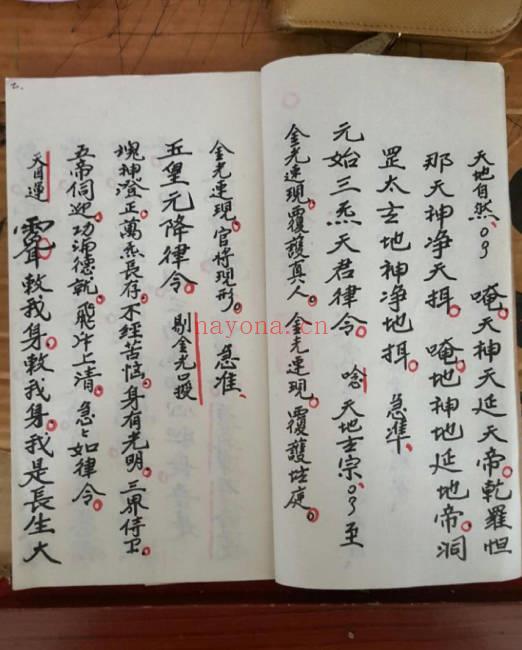 天地自然。唵。天神天延天帝。乾羅怛
那天神净天揖。唵。地神地延地帝。洞
罡太玄地神净地揖。急準、
元始三炁天君律令。唸 天地玄宗。至
金光速現。覆護真人。金光速現。覆護坛庭。
金光速現。官将現形。急准、
玉皇元降律令。 剔金光口授
魂神澄正。萬炁長存。不經苦惱。身有光明。三界侍卫。
五帝伺迎。功满德就。飛升上清。急々如律令。
天目運 敕我身。敕我身。我是長生大
hayona.cn